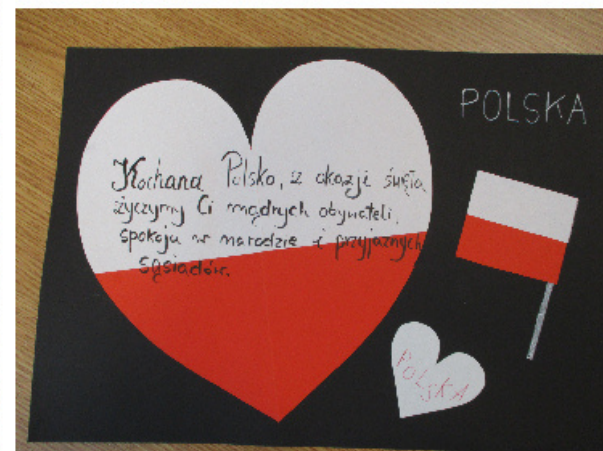 POLSKA
Kochana Polsko, z okazji święta
życzymy Ci mądrych obywateli,
spokoju w narodzie i przyjaznych
sąsiadów.
POLSKA